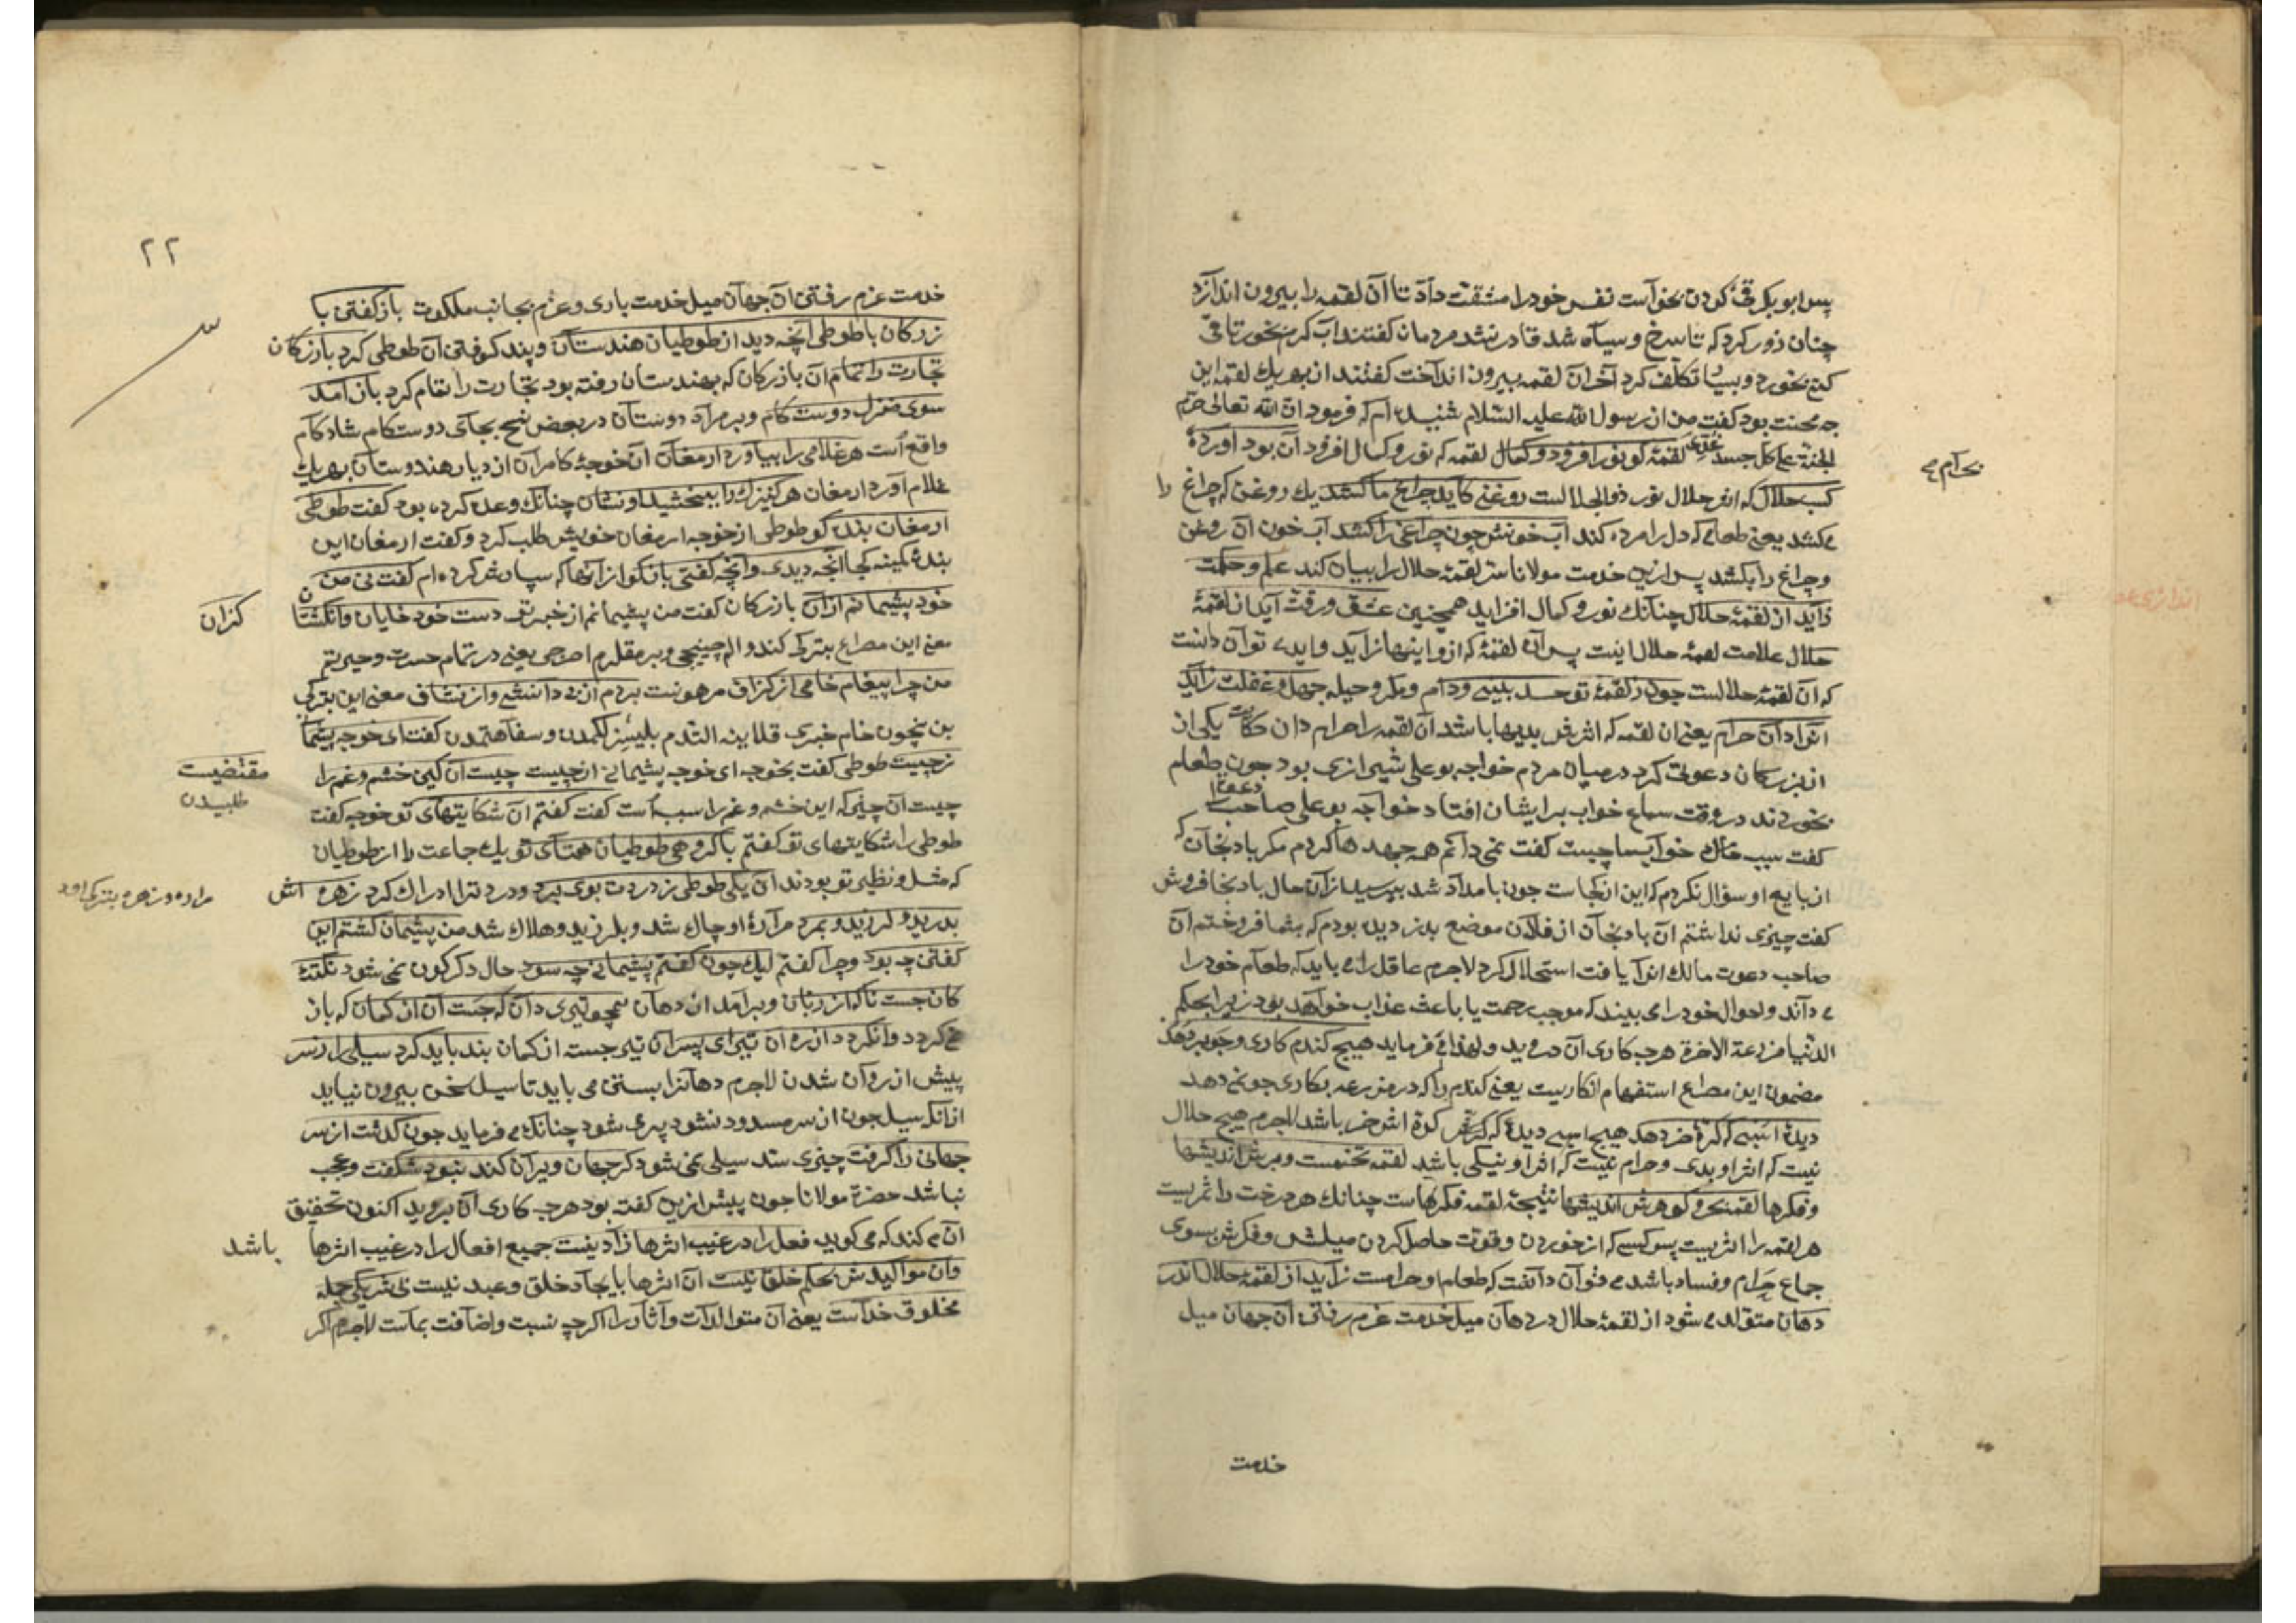 پس ابوبکر قی کردن بخواست نفس خودرا مشقت داد تا آن لقمه را بیرون اندازد
چنان زور کرد که تا سرخ و سیاه شد قادر نشد مردمان کفتند آب کرم بخور تا قی
کنی بخورد و بسیار تکلف کرد آخر آن لقمه بیرون انداخت کفتند از بهر یك لقمه این
چه محنت بود کفت من از رسول الله علیه السلام شنیده‌ام که فرمود ان الله تعالی حرم
الجنة علی کل جسد غذی لقمهٔ کو نور افزود و کمال لقمه که نور و کمال افزود آن بود آورده
بحرام
کسب حلال که اثر حلال نور ذوالجلالست روغنی کاید چراغ ما کشد یك روغن که چراغ را
می‌کشد یعنی طعامی که دل را مرده کند آب خوانش چون چراغی را کشد آب خون آن روغن
و چراغ را بکشد پس ازین خدمت مولانا سر لقمهٔ حلال را بیان کند علم و حکمت
زاید از لقمهٔ حلال چنانك نور و کمال افزاید همچنین عشق و رقت آید از لقمهٔ
حلال علامت لقمهٔ حلال اینست پس آن لقمهٔ که ازو اینها زاید و آید توان دانست
که آن لقمهٔ حلالست چون ز لقمهٔ تو حسد بینی و دام و مکر و حیله جهل و غفلت زاید
آنرا دان حرام یعنی آن لقمه که اثرش بدیها باشد آن لقمه را حرام دان حکایت یکی از
از بزرکان دعوتی کرد در میان مردم خواجه بوعلی شیرازی بود چون طعام
بخوردند در وقت سماع خواب بر ایشان افتاد خواجه بوعلی صاحب دعوت را
کفت سبب خواب ما چیست کفت نمی‌دانم همه جهدها کردم مکر بادنجان که
از بایع او سؤال نکردم که این از کجاست چون بامداد شد بپرسید از آن حال بادنجان فروش
کفت چیزی نداشتم آن بادنجان از فلان موضع بدزدیده بودم که بشما فروختم آن
صاحب دعوت مالك آنرا یافت استحلال کرد لاجرم عاقل را می باید که طعام خود را
می داند و احوال خود را می بیند که موجب رحمت یا باعث عذاب خواهد بود زیرا بحکم
الدنیا مزرعة الاخرة هرچه کاری آن دروید و لهذا می فرماید هیچ کندم کاری و جو بر دهد
مضمون این مصراع استفهام انکاریست یعنی کندم را که در مزرعه بکاری جو نمی دهد
دیدهٔ اسبی که کرهٔ خر دهد هیچ اسبی دیدهٔ که کرهٔ اش خر باشد لاجرم هیچ حلال
نیست که اثر او بدی و حرام نیست که اثر او نیکی باشد لقمه تخمست و برش اندیشها
و فکرها لقمه بحر و کوهرش اندیشها نتیجهٔ لقمه فکرهاست چنانك هر درخت را ثمریست
هر لقمه را اثریست پس کسی که از خوردن و قوت حاصل کردن میلش و فکرش بسوی
جماع حرام و فساد باشد می توان دانست که طعام او حرامست زاید از لقمهٔ حلال اندر
دهان متولد می شود از لقمهٔ حلال در دهان میل خدمت عزم رفتن آن جهان میل
خدمت
۲۲
خدمت عزم رفتن آن جهان میل خدمت باری و عزم بجانب ملکوت باز کفتن با
زرکان با طوطی آنچه دید از طوطیان هندستان و پند کرفتن آن طوطی کرد بازرکان
تجارت را تمام آن بازرکان که بهندستان رفته بود تجارت را تمام کرد باز آمد
سوی منزل دوست کام و بر مراد دوستان در بعض نسخ بجای دوستکام شاد کام
واقع است هر غلامی را بیاورد ارمغان آن خوجهٔ کامران از دیار هندوستان بهر یك
غلام آورد ارمغان هر کنیزك را ببخشید او نشان چنانك وعده کرده بود کفت طوطی
ارمغان بنده کو طوطی از خوجه ارمغان خویش طلب کرد و کفت ارمغان این
بندهٔ کمینه کجا آنچه دیدی و آنچه کفتی باز کو از آنها که سپارش کرده ام کفت نی من
خود پشیمانم از آن بازرکان کفت من پشیمانم از خبر تو دست خود خایان و انکشتان
کزان
معنی این مصراع بترکی کندو الم چینیجی و پرمقلرم اصرجی یعنی در تمام حسرت و حیرتم
من چرا پیغام خامی از کزاف مرهونست بردم از بی دانشی و از نشاف معنی این بترکی
بن نچون خام خبری قلاینه التدم بلیسز لکمدن و سفاهتمدن کفت ای خوجه پشیما
ز چیست طوطی کفت بخوجه ای خوجه پشیمانی از چیست چیست آن کین خشم و غم را
مقتضیست
طلبیدن
چیست آن چیز که این خشم و غم را سبب است کفت کفتم آن شکایتهای تو خوجه کفت
طوطی را شکایتهای تو کفتم با کروهی طوطیان همتای تو یك جماعت را از طوطیان
که مثل و نظیر تو بودند آن یکی طوطی ز دردت بوی برد و درد ترا ادراك کرد زهره اش
بدرید و لرزید و بمرد مرارهٔ او چاك شد و بلرزید و هلاك شد من پشیمان کشتم این
کفتن چه بود و چرا کفتم لیك چون کفتم پشیمانی چه سود حال دکرکون نمی شود نکتهٔ
کان جست ناکه از زبان و برآمد از دهان همچو تیری دان که جست آن از کمان که باز
نمی کردد وانکردد از ره آن تیر ای پسر آن تیر جسته از کمان بند باید کرد سیلی را ز سر
پیش از روان شدن لاجرم دهانرا بستن می باید تا سیل سخن بیرون نیاید
ازانکه سیل چون از سر مسدود نشود پری شود چنانك می فرماید چون کذشت از سر
جهانی را کرفت چیزی سد سیلی نمی شود کر جهان ویران کند نبود شکفت و عجب
نباشد حضرة مولانا چون پیش ازین کفته بود هرچه کاری آن بروید اکنون تحقیق
آن می کند که می کوید فعل را در غیب اثرها زادنیست جمیع افعال را در غیب اثرها باشد
وان موالیدش بحکم خلق نیست آن اثرها بایجاد خلق و عبد نیست بی شریکی جمله
مخلوق خداست یعنی آن متوالدات و آثار را اکرچه نسبت و اضافت بماست لاجرم اکر